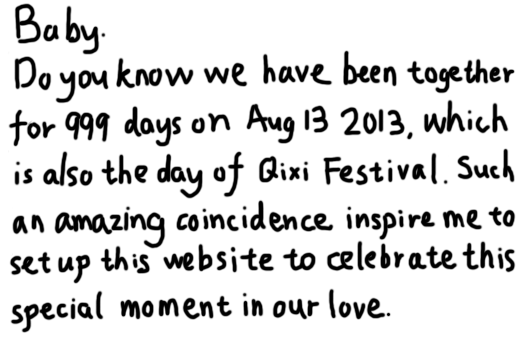 Baby.
Do you know we have been together
for 999 days on Aug 13 2013, which
is also the day of Qixi Festival. Such
an amazing coincidence inspire me to
set up this website to celebrate this
special moment in our love.